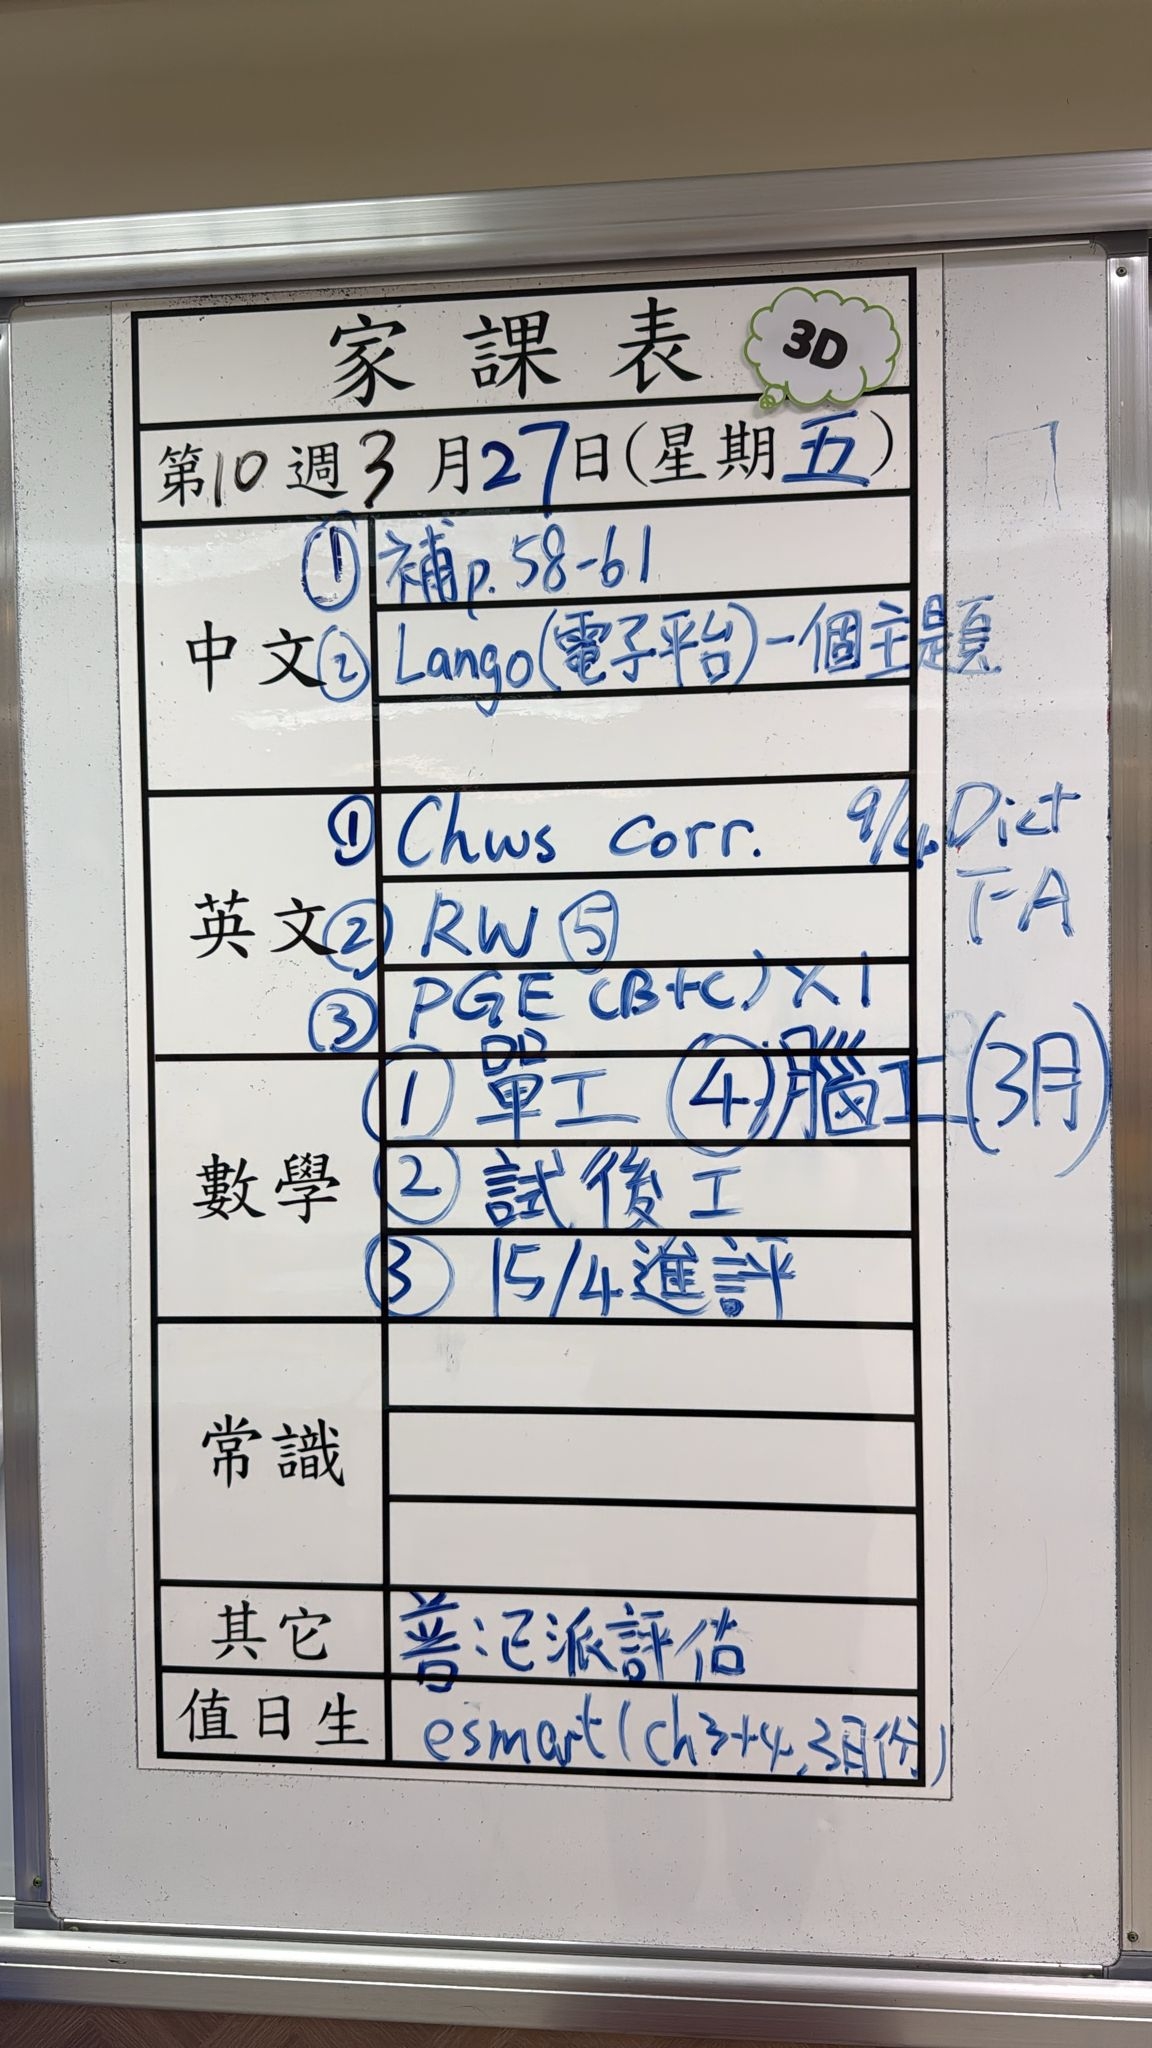 家課表 3D
第10週3月27日(星期五)
中文
① 補p.58-61
② Lango(電子平台)一個主題
英文
① Chws corr. 9/4 Dict
T-A
② RW ⑤
③ PGE (B+C) X1
數學
① 單工 ④腦工(3月)
② 試後工
③ 15/4進評
常識
其它 普 派評估
值日生 esmart(ch3+4,3月份)